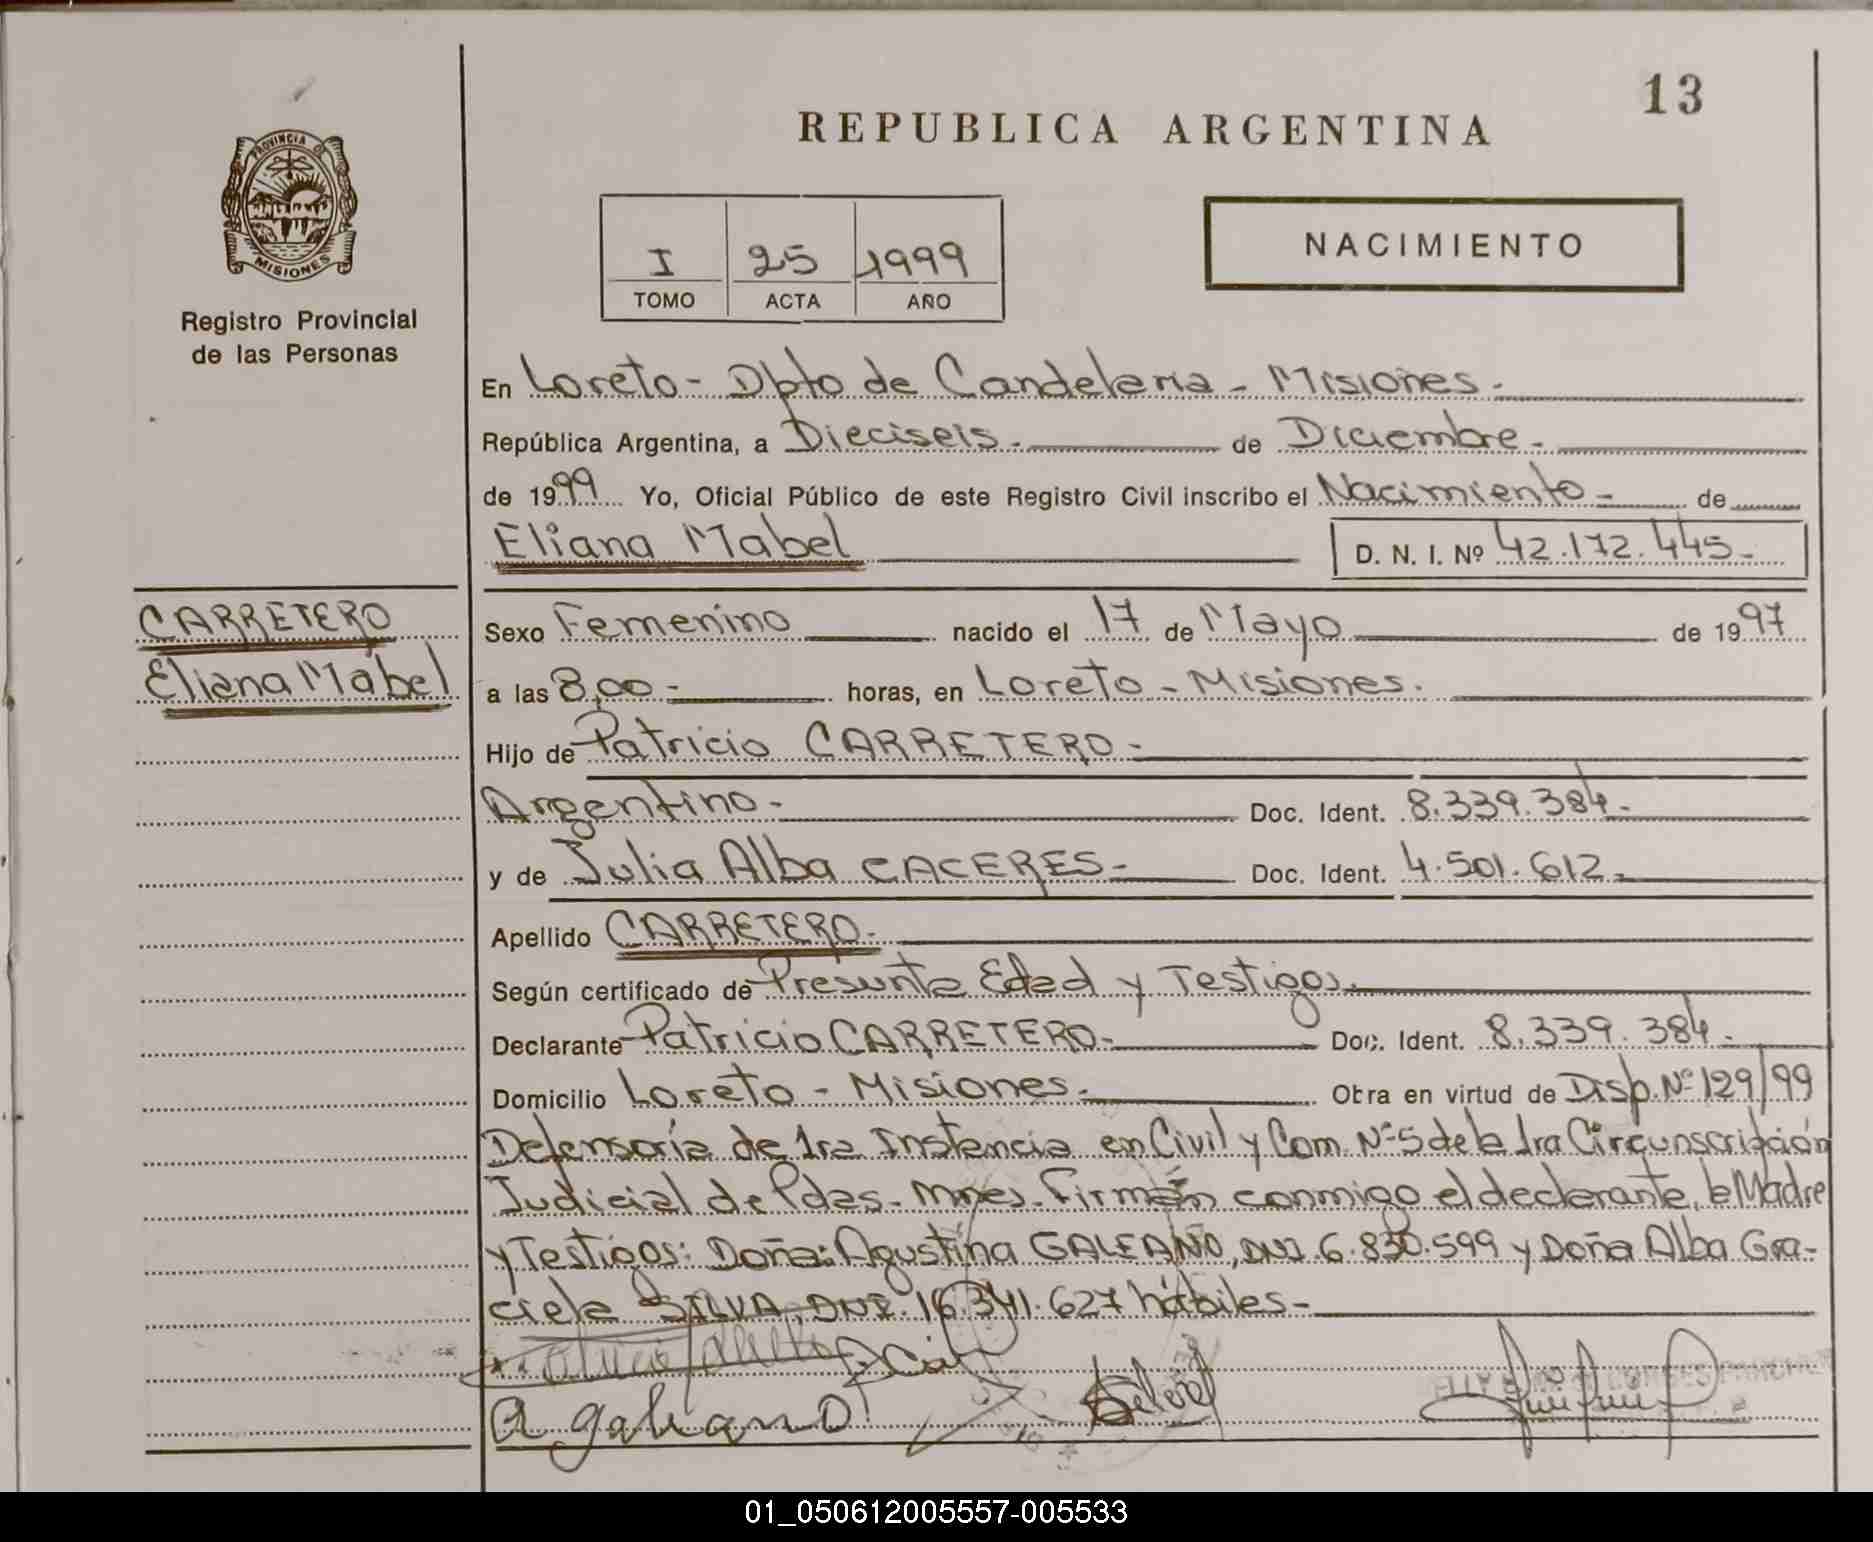 13
REPUBLICA ARGENTINA
PROVINCIA D
MISIONES
Registro Provincial
de las Personas
I 25 1999
TOMO ACTA AÑO
NACIMIENTO
En Loreto - Dpto de Candelaria - Misiones.
República Argentina, a Dieciseis. de Diciembre.
de 1999 Yo, Oficial Público de este Registro Civil inscribo el Nacimiento - de
Eliana Mabel D. N. I. Nº 42.172.445-
CARRETERO
Eliana Mabel
Sexo Femenino nacido el 17 de Mayo de 1997
a las 8,00- horas, en Loreto - Misiones.
Hijo de Patricio CARRETERO-
Argentino- Doc. Ident. 8.339.384-
y de Julia Alba CACERES- Doc. Ident. 4.501.612-
Apellido CARRETERO-
Según certificado de Presunta Edad y Testigos.
Declarante Patricio CARRETERO- Doc. Ident. 8.339.384-
Domicilio Loreto - Misiones. Obra en virtud de Disp. Nº 129/99
Defensoría de 1ra Instancia en Civil y Com. Nº 5 de la 1ra Circunscripción
Judicial de Pdas. Mnes. Firman conmigo el declarante, la Madre
y Testigos: Doña: Agustina GALEANO, DNI. 6.830.599 y Doña Alba Gra-
ciela SILVA, DNI. 16.341.627 hábiles-
A galeano
01_050612005557-005533